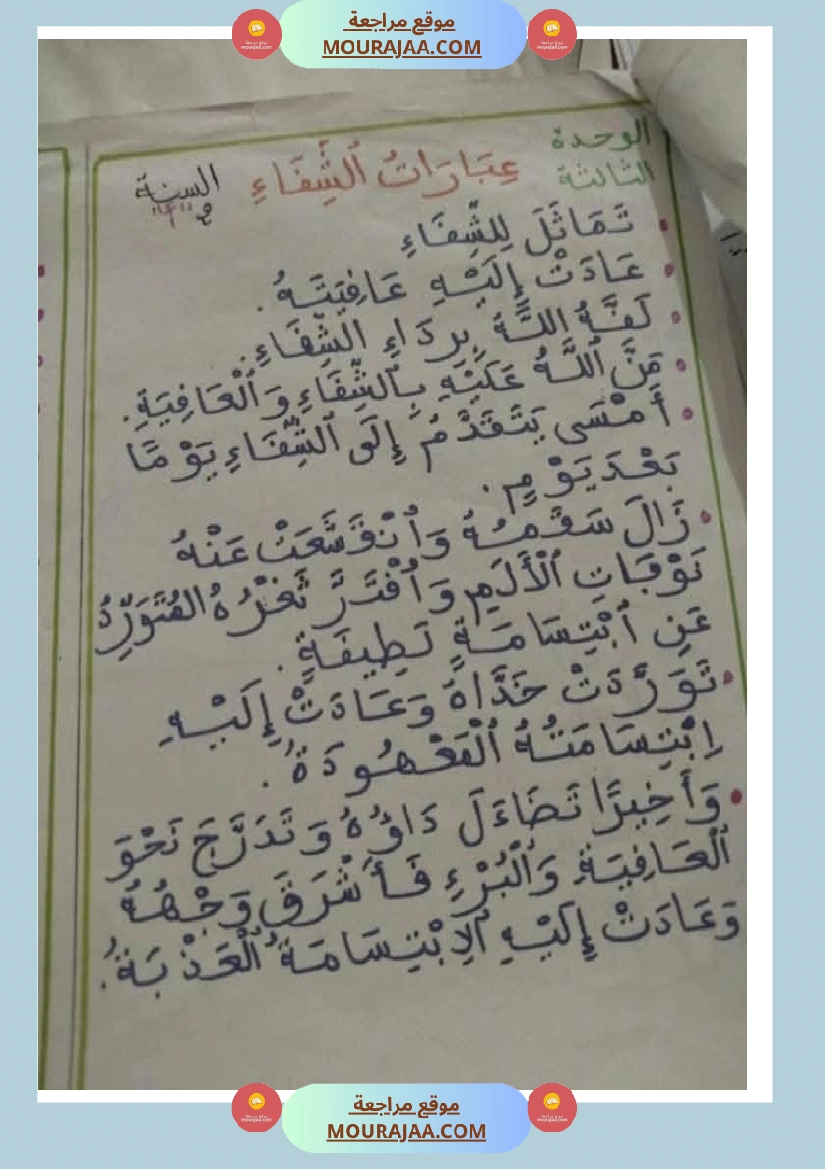 موقع مراجعة
MOURAJAA.COM
الوحدة
الثالثة
عِبَارَاتُ ٱلشِّفَاءِ
السنة
تَمَاثَلَ لِلشِّفَاءِ
عَادَتْ إِلَيْهِ عَافِيَتَهُ.
لَفَّهُ اللَّهُ بِرِدَاءِ الشِّفَاءِ.
مَنَّ ٱللَّهُ عَلَيْهِ بِٱلشِّفَاءِ وَٱلْعَافِيَةِ.
أَمْسَى يَتَقَدَّمُ إِلَى ٱلشِّفَاءِ يَوْمًا
بَعْدَ يَوْمٍ.
زَالَ سَقَمُهُ وَٱنْقَشَعَتْ عَنْهُ
نَوْبَاتِ ٱلْأَلَمِ وَٱفْتَرَّ ثَغْرُهُ المُتَوَرِّدُ
عَنِ ٱبْتِسَامَةٍ لَطِيفَةٍ.
تَوَرَّدَتْ خَدَّاهُ وَعَادَتْ إِلَيْهِ
اِبْتِسَامَتُهُ ٱلْمَعْهُودَةُ.
وَأَخِيرًا تَضَاءَلَ دَاؤُهُ وَتَدَرَّجَ نَحْوَ
ٱلْعَافِيَةِ وَٱلْبُرْءِ فَأَشْرَقَ وَجْهُهُ
وَعَادَتْ إِلَيْهِ ٱلِابْتِسَامَةُ ٱلْعَذْبَةُ.
موقع مراجعة
MOURAJAA.COM